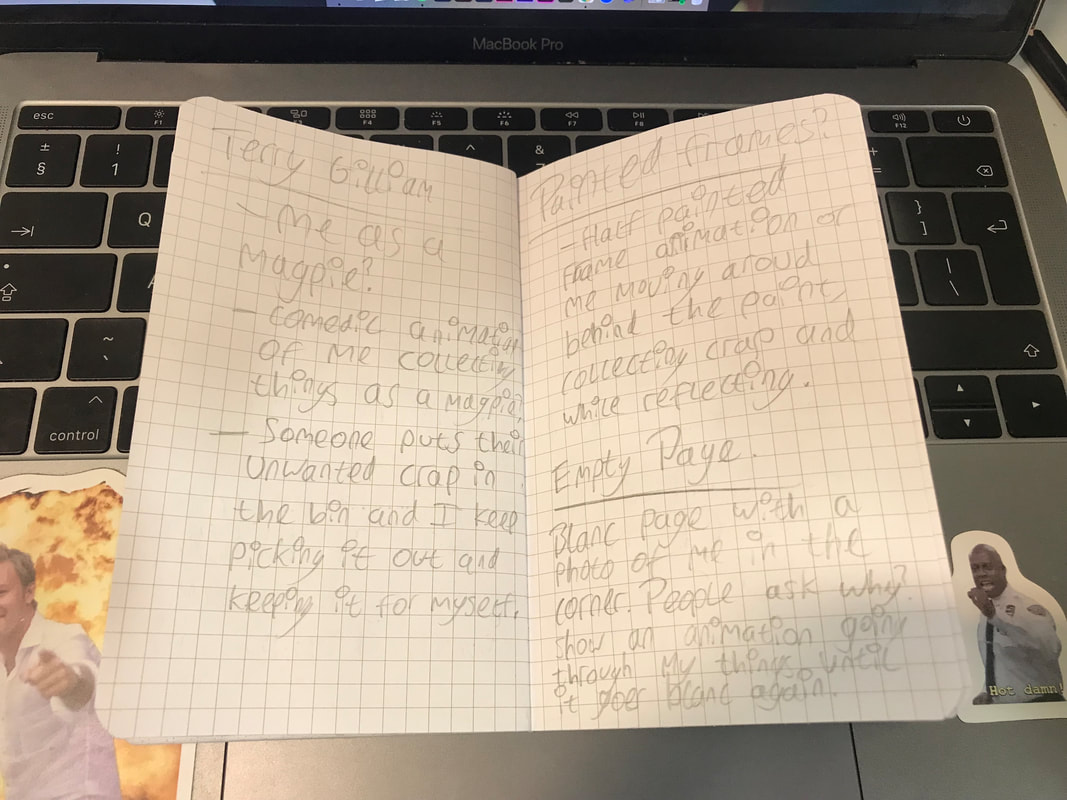 MacBook Pro
esc
F1
F3
F4
F5
F6
F7
F8
F12
±
§
!
1
^
&
+
=
Q
}
]
|
\
~
`
control
Terry Gilliam
- Me as a
Magpie?
- comedic animation
of me collecting
things as a magpie.
- Someone puts their
unwanted crap in
the bin and I keep
picking it out and
keeping it for myself.
Painted frames?
- Half painted
frame animation or
me moving aroud
behind the paint,
collecting crap and
while reflecting.
Empty Page.
Blanc page with a
photo of me in the
corner. People ask why?
show an animation going
through my things until
it goes blanc again.
Hot damn!